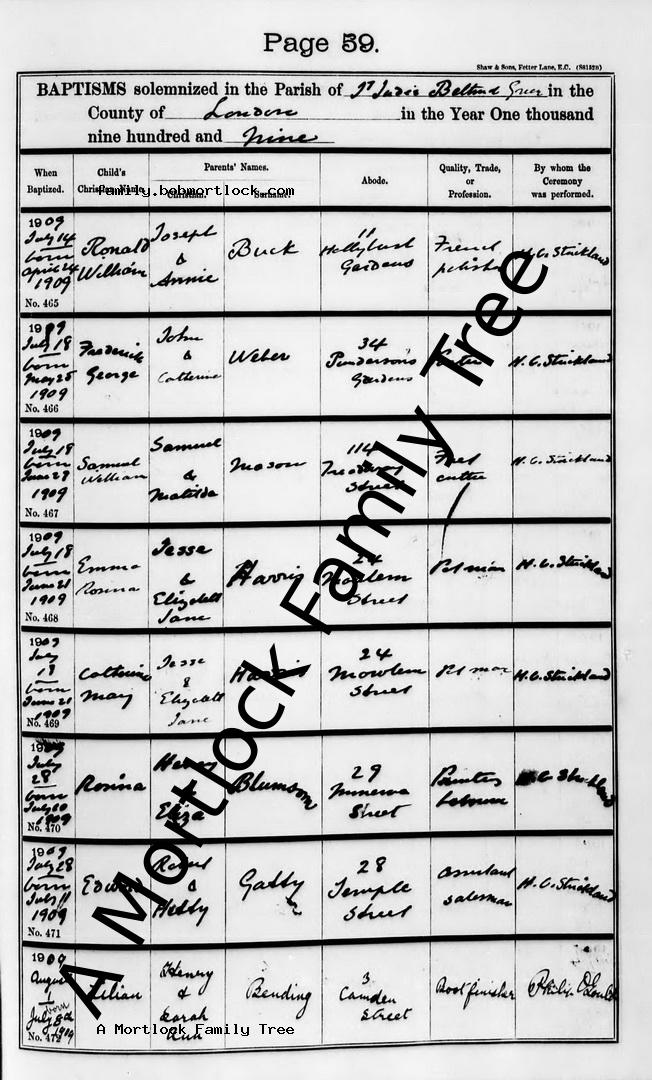 Page 59.
Shaw & Sons, Fetter Lane, E.C. (S6152B)
BAPTISMS solemnized in the Parish of St Judes Bethnal Green in the
County of London in the Year One thousand
nine hundred and Nine
When Baptized. Child's Christian Name. Parents' Names. Christian. Surname. Abode. Quality, Trade, or Profession. By whom the Ceremony was performed.
family.bobmortlock.com
1909 July 14 born April 24 1909 No. 465
Ronald William
Joseph & Annie
Buck
11 Hollybush Gardens
French polisher
H. C. Strickland
1909 July 18 born May 25 1909 No. 466
Frederick George
John & Catherine
Weber
34 Punderson's Gardens
H. C. Strickland
1909 July 18 born June 29 1909 No. 467
Samuel William
Samuel & Matilda
Mason
114 Treadway Street
cutter
H. C. Strickland
1909 July 18 born June 21 1909 No. 468
Emma Rosina
Jesse & Elizabeth Jane
Harris
24 Mowlem Street
Potman
H. C. Strickland
1909 July 18 born June 21 1909 No. 469
Catherine May
Jesse & Elizabeth Jane
Harris
24 Mowlem Street
Potman
H. C. Strickland
1909 July 28 born July 10 1909 No. 470
Rosina
Henry & Eliza
Blumsom
29 Minerva Street
Painters labourer
H. C. Strickland
1909 July 28 born July 11 1909 No. 471
Edward
& Hetty
Gatty
28 Temple Street
assistant salesman
H. C. Strickland
1909 August 1 born July 8th 1909 No. 472
Lilian
Henry & Sarah Ann
Bending
3 Camden Street
Boot finisher
Philip
A Mortlock Family Tree
A Mortlock Family Tree